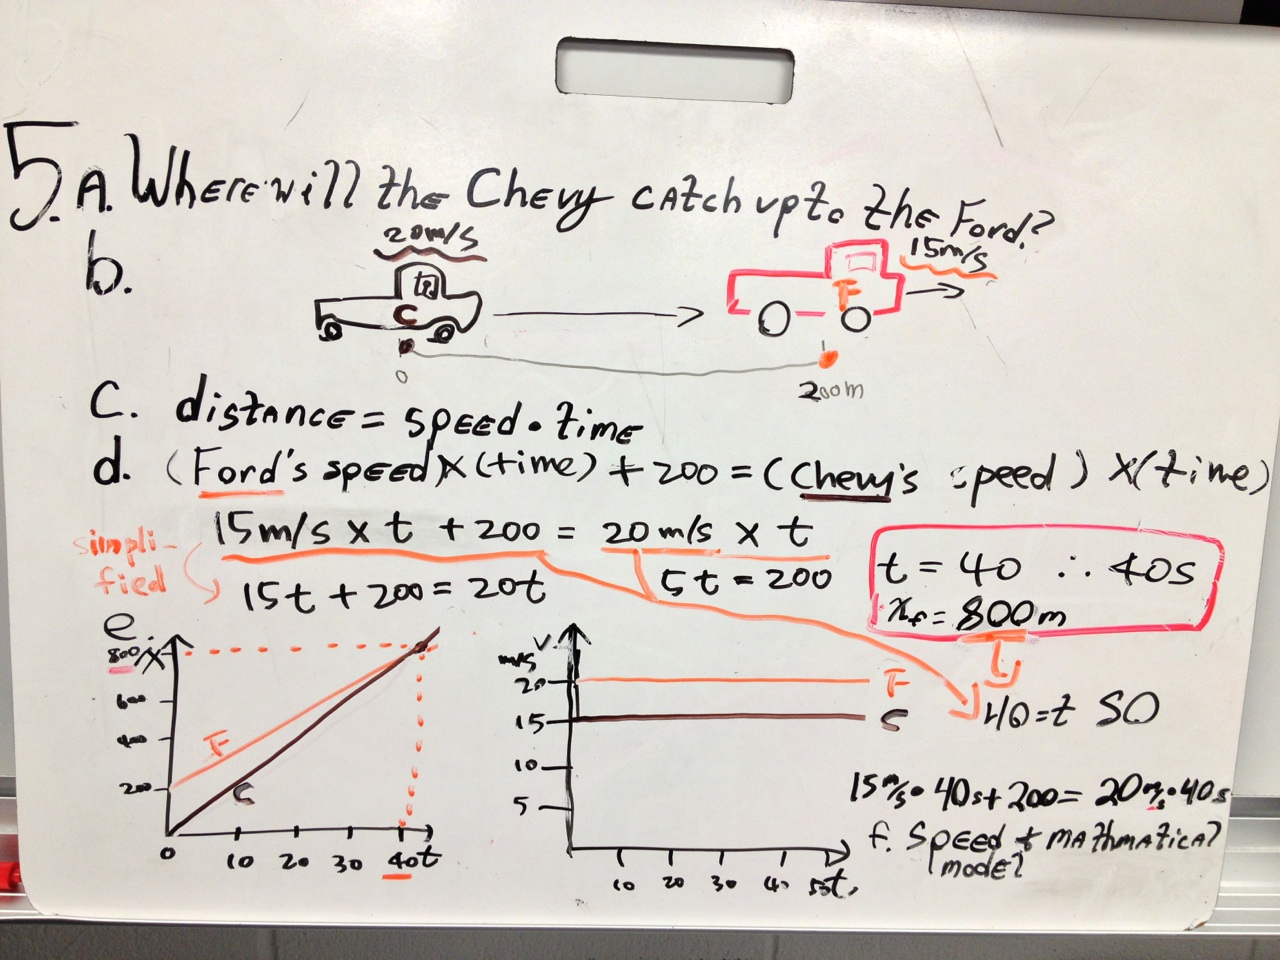 5. A. Where will the Chevy catch up to the Ford?
b.
20m/s
15m/s
C
F
0
200m
c. distance = speed • time
d. (Ford's speed) x (time) + 200 = (Chevy's speed) x (time)
15m/s x t + 200 = 20 m/s x t
simpli-
fied
15t + 200 = 20t
5t = 200
t = 40 ∴ 40s
xf = 800m
e.
800 x
600
400
200
F
C
0 10 20 30 40 t
v
m/s
20
15
10
5
F
C
10 20 30 40 50 t
40 = t SO
15 m/s • 40s + 200 = 20 m/s • 40s
f. Speed + mathmatical
model